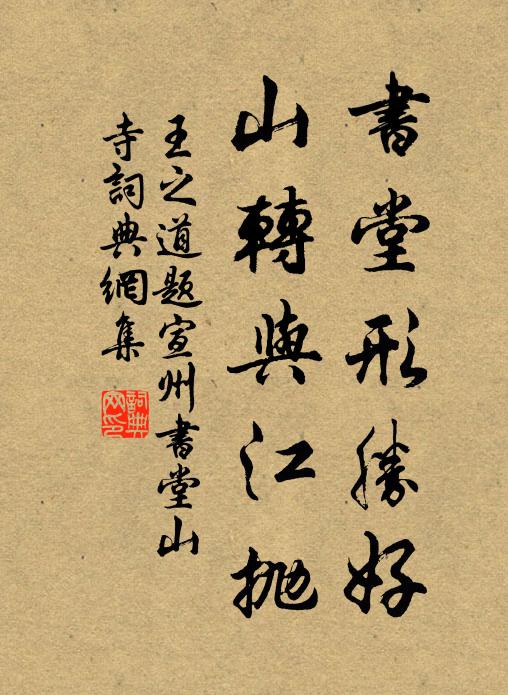 書堂形勝好
山轉與江拋
王之道題宣州書堂山
寺詞典網集
詞典
网印